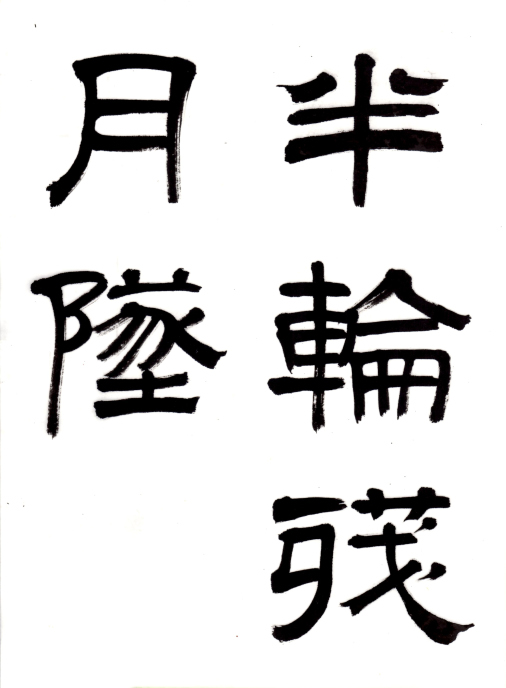 半輪残
月墜